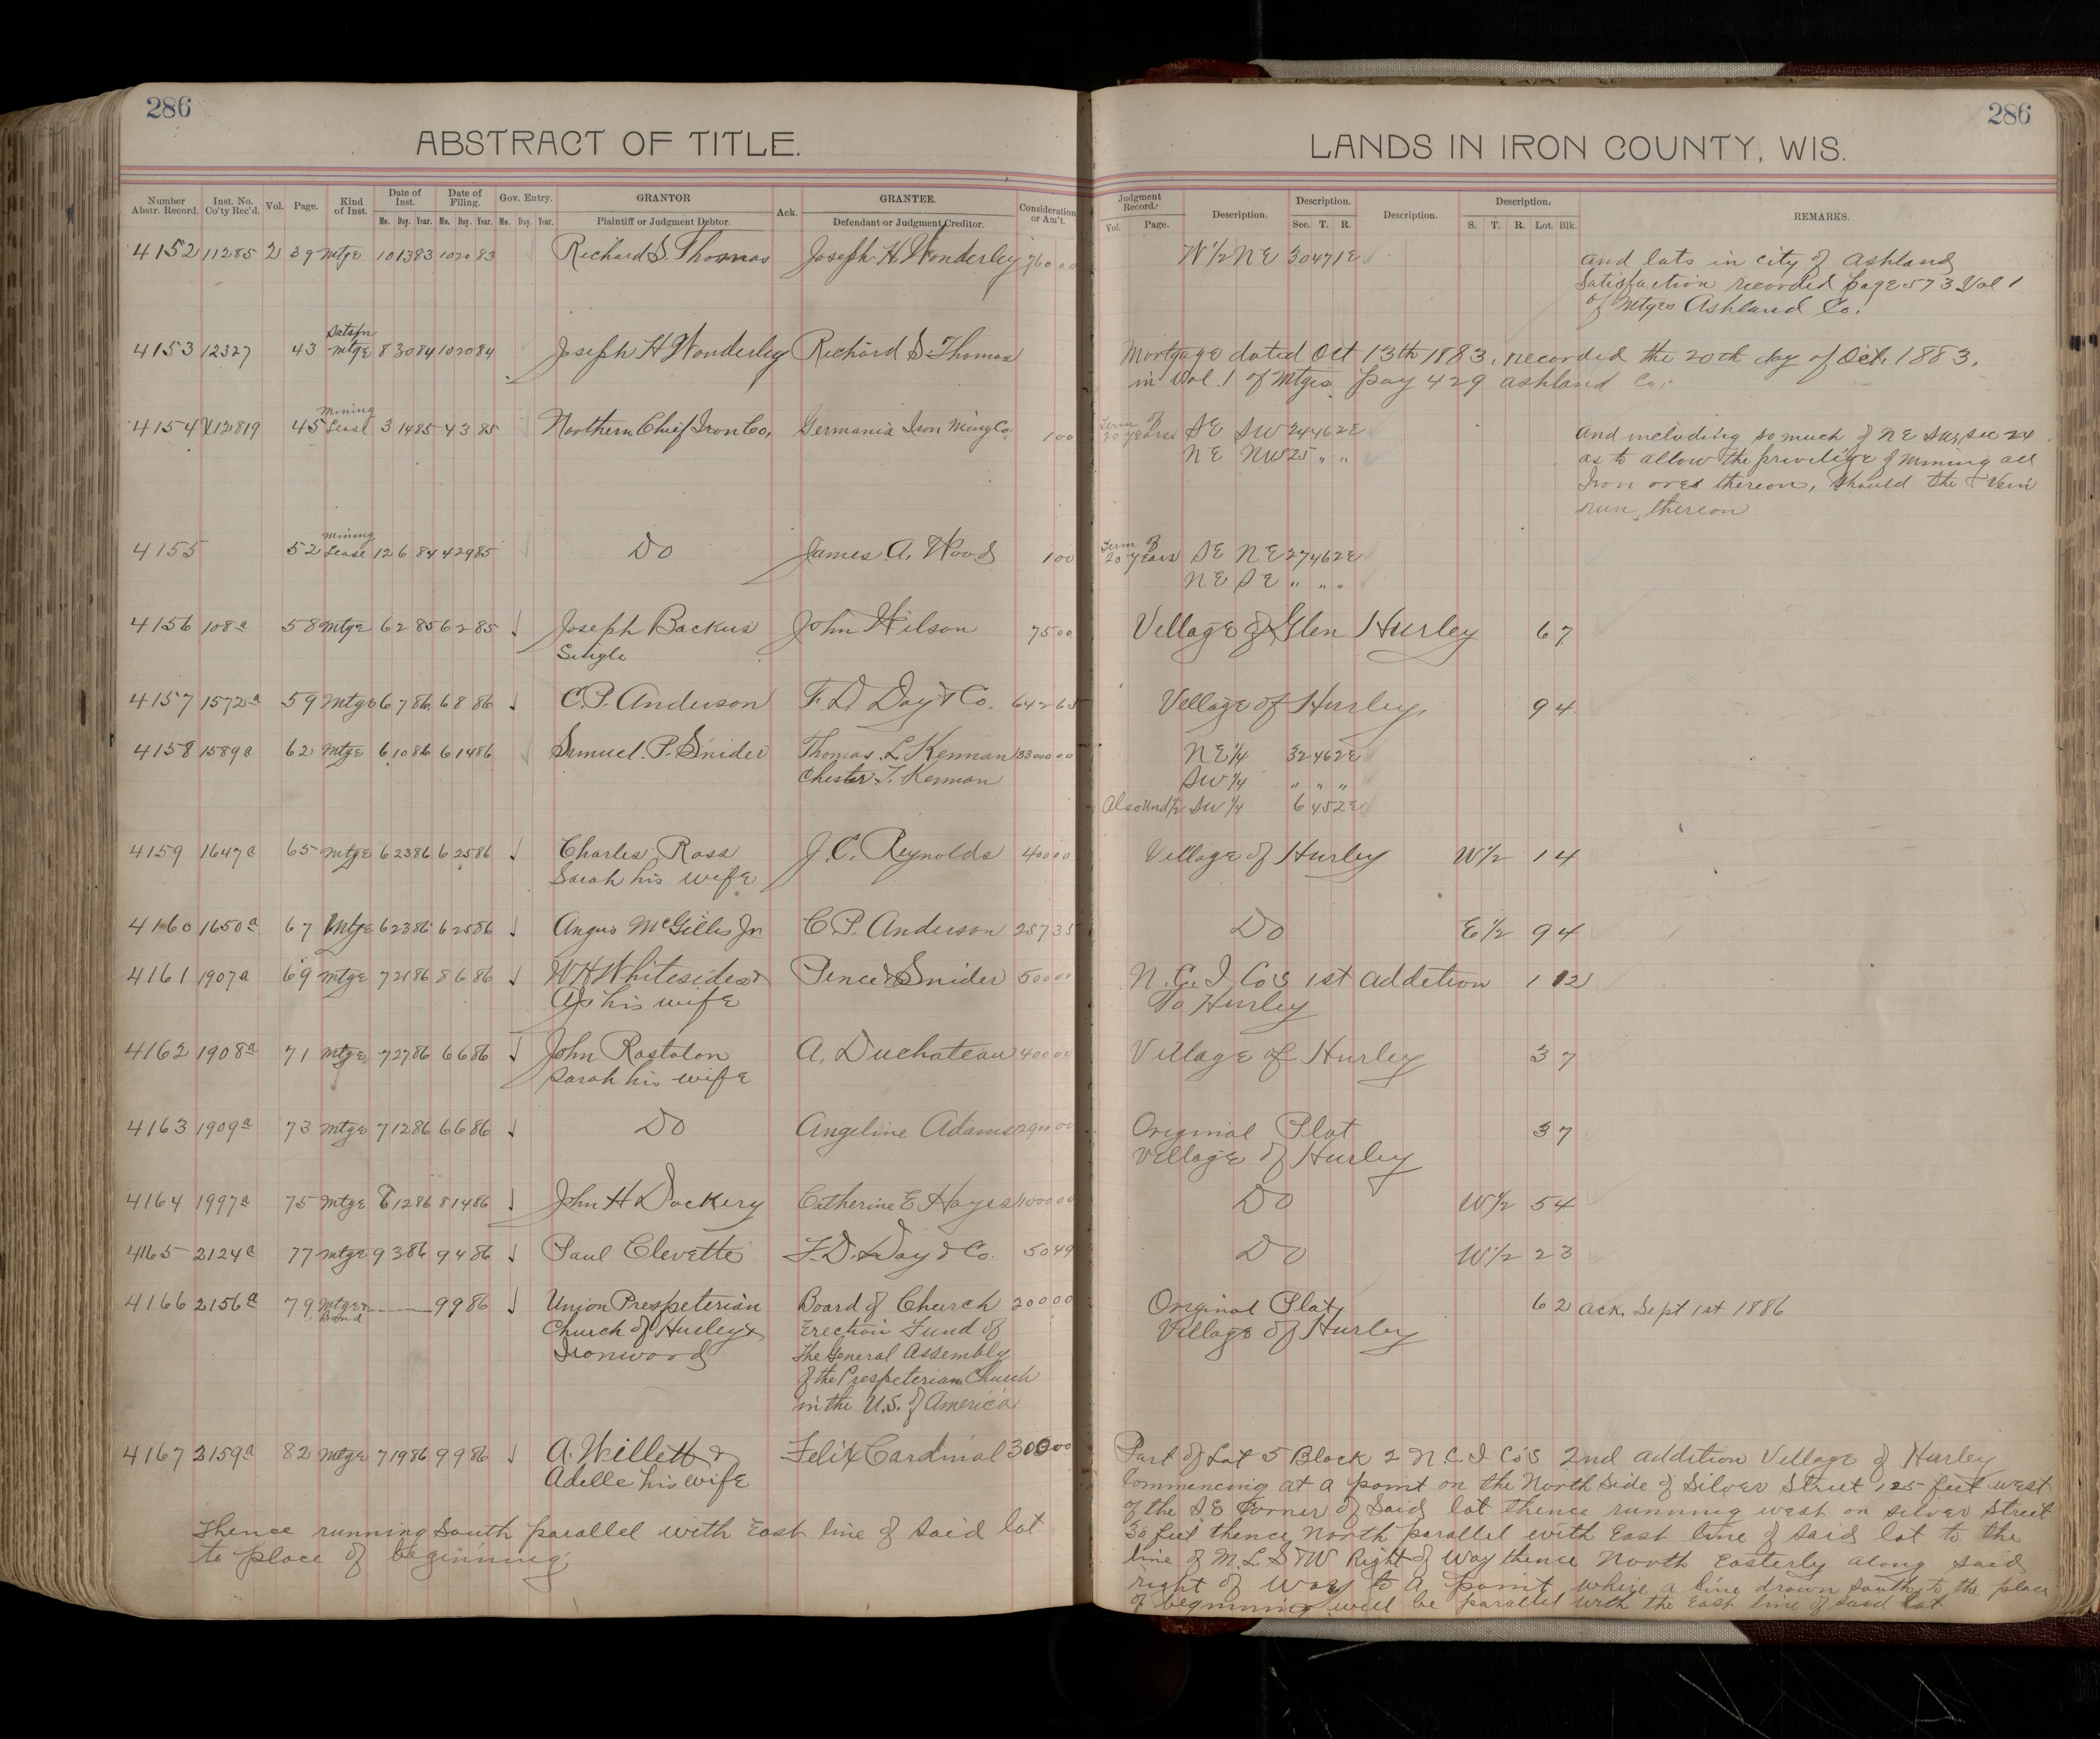 286
ABSTRACT OF TITLE.
Number Abstr. Record. Inst. No. Co'ty Rec'd. Vol. Page. Kind of Inst. Date of Inst. Date of Filing. Gov. Entry. GRANTOR Ack. GRANTEE. Consideration or Am't.
Mo. Day. Year. Mo. Day. Year. Mo. Day. Year. Plaintiff or Judgment Debtor. Defendant or Judgment Creditor.
4152 11285 2 39 Mtge 10 13 83 10 20 83 Richard S. Thomas Joseph H Wonderley 760 00
Satsfn
4153 12327 43 Mtge 8 30 84 10 20 84 Joseph H Wonderley Richard S. Thomas
Mining
4154 12819 45 Lease 3 14 85 4 3 85 Northern Chief Iron Co, Germania Iron Ming Co. 1 00
Mining
4155 52 Lease 12 6 84 4 29 85 Do James A. Wood 1 00
4156 108a 58 Mtge 6 2 85 6 2 85 Joseph Backus John Wilson 75 00
Single
4157 1572a 59 Mtge 6 7 86 6 8 86 C.P. Anderson F. D Day & Co. 642 65
4158 1589a 62 Mtge 6 10 86 6 14 86 Samuel. P. Snider Thomas. L Kennan 33000 00
Chester. T. Kennan
4159 1647a 65 Mtge 6 23 86 6 25 86 Charles Ross J. C. Reynolds 400 00
Sarah his wife
4160 1650a 67 Mtge 6 23 86 6 25 86 Angus McGillis Jr C P. Anderson 257 35
4161 1907a 69 Mtge 7 21 86 8 6 86 W H Whitesides & Pence & Snider 500 00
his wife
4162 1908a 71 Mtge 7 27 86 6 6 86 John Rostolon A. Duchateau 400 00
Sarah his wife
4163 1909a 73 Mtge 7 12 86 6 6 86 Do Angeline Adams 2900 00
4164 1997a 75 Mtge 8 12 86 8 14 86 John H Dockery Catherine E Hayes 1000 00
4165 2124a 77 Mtge 9 3 86 9 4 86 Paul Clevette F. D. Day & Co. 50 49
4166 2156a 79 Mtge & 9 9 86 Union Prespeterian Board of Church 200 00
Bond Church of Hurley & Erection Fund of
Ironwood The General Assembly
of the Prespeterian Church
in the U.S. of America
4167 2159a 82 Mtge 7 19 86 9 9 86 A. Willett & Felix Cardinal 300 00
Adelle his wife
Thence running South parallel with East line of said lot
to place of beginning.
286
LANDS IN IRON COUNTY, WIS.
Judgment Record. Description. Description. Description. Description. REMARKS.
Vol. Page. Sec. T. R. S. T. R. Lot. Blk.
W 1/2 NE 30 47 1E and lots in city of Ashland
Satisfaction recorded page 573 Vol 1
of Mtges Ashland Co.
Mortgage dated Oct 13th 1883, recorded the 20th day of Oct. 1883,
in Vol. 1 of Mtges. pay 429 Ashland Co.
Term of
20 years SE SW 24 46 2E And including so much of NE SW, Sec 24
NE NW 25 " " as to allow the privilige of mining all
Iron ores thereon, should the Vein
run thereon
Term of
20 years SE NE 27 46 2E
NE SE " " "
Village of Glen Hurley 6 7
Village of Hurley, 9 4
NE 1/4 32 46 2E
SW 1/4 " " "
Also und 1/2 SW 1/4 6 45 2E
Village of Hurley W 1/2 1 4
Do E 1/2 9 4
N. C. I Co's 1st Addition 1 12
To Hurley
Village of Hurley 3 7
Original Plat 3 7
Village of Hurley
Do W 1/2 5 4
Do W 1/2 2 3
Original Plat 6 2 Ack. Sept 1st 1886
Village of Hurley
Part of Lot 5 Block 2 N C. I Co's 2nd Addition Village of Hurley
Commencing at a point on the North Side of Silver Street 125 feet west
of the S E Corner of Said lot thence running west on Silver Street
30 feet thence North parallel with East line of said lot to the
line of M. L. S & W Right of Way thence North Easterly along said
right of way to a point where a line drawn South to the place
of beginning will be parallel with the East line of said lot